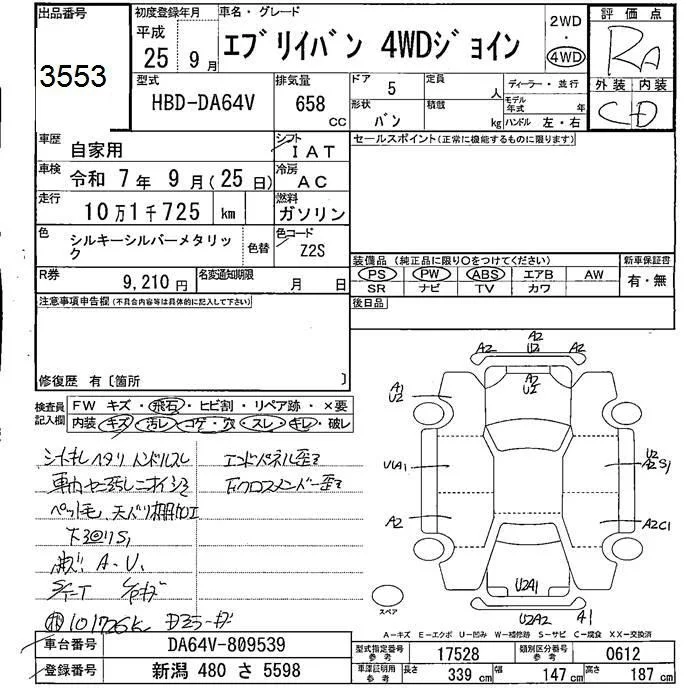 出品番号
3553
初度登録年月
平成
25 9月
車名・グレード
エブリイバン 4WDジョイン
2WD
・
4WD
評価点
RA
外装 内装
C D
型式
HBD-DA64V
排気量
658 CC
ドア 5
定員 人
形状 バン
積載 kg
ディーラー・並行
モデル年式 年
ハンドル 左・右
車歴 自家用
シフト IAT
セールスポイント(正常に機能するものに限ります)
車検 令和 7年 9月(25日)
冷房 AC
走行 10万1千725 km
燃料 ガソリン
色 シルキーシルバーメタリック
色替
色コード Z2S
装備品(純正品に限り○をつけてください)
新車保証書
PS PW ABS エアB AW
有・無
SR ナビ TV カワ
R券 9,210円
名変通知期限 月 日
後日品
注意事項申告欄(不具合内容等は具体的に記入して下さい)
修復歴 有〔箇所 〕
検査員記入欄
FW キズ・飛石・ヒビ割・リペア跡・×要
内装 キズ・汚レ・コゲ・穴・スレ・キレ・破レ
シートキレ ヘタリ ハンドルスレ
エンドパネル歪ミ
ペット毛、天バリ
下回りS1
A・U、
101725K
A2
A2 U2 A2
A2
U2
A1
U2
U1A1
U2
A2S1
A2
A2C1
U2A1
U2A2 A1
スペア
A-キズ E-エクボ U-凹み W-補修跡 S-サビ C-腐食 XX-交換済
車台番号 DA64V-809539
登録番号 新潟 480 さ 5598
型式指定番号 参考 17528
類別区分番号 参考 0612
車庫証明用 参考 長さ 339 cm 幅 147 cm 高さ 187 cm